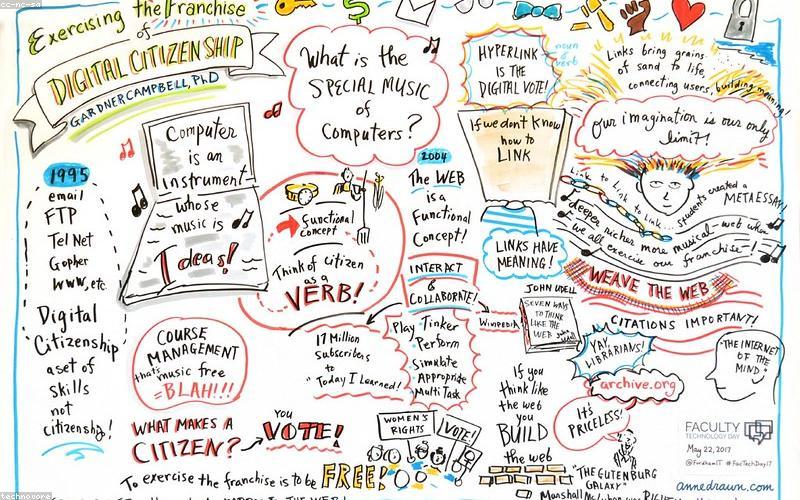 cc-nc-sa
Exercising the Franchise
of
DIGITAL CITIZENSHIP
GARDNER CAMPBELL, PhD
What is the
SPECIAL MUSIC
of
Computers?
HYPERLINK
IS THE
DIGITAL VOTE!
noun
& verb
Links bring grains
of sand to life,
connecting users, building meaning!
Our imagination is our only
limit!
Computer
is an
instrument
whose
music is
Ideas!
1995
email
FTP
Tel Net
Gopher
WWW, etc.
Digital
Citizenship
a set of
skills
not
citizenship!
Functional
concept
Think of citizen
as a
VERB!
2004
The WEB
is a
Functional
Concept!
INTERACT
&
COLLABORATE!
Play Tinker
Perform
Simulate
Appropriate
Multi Task
Wikipedia
If we don't know
how to
LINK
LINKS HAVE
MEANING!
Link to Link to Link...
students created a
METAESSAY!
deeper, richer more musical web when
we all exercise our franchise!
WEAVE THE WEB
CITATIONS IMPORTANT!
JOHN UDELL
SEVEN WAYS
TO THINK
LIKE THE
WEB
YAY,
LIBRARIANS!
archive.org
IT'S
PRICELESS!
"THE INTERNET
OF THE
MIND"
COURSE
MANAGEMENT
that's music free
=BLAH!!!
17 Million
Subscribers
to
"Today I Learned!
If you
think like
the web
you
BUILD
the web
WHAT MAKES A
CITIZEN?
you
VOTE!
WOMEN'S
RIGHTS
VOTE!
To exercise the franchise is to be FREE!
"THE GUTENBURG
GALAXY"
Marshall
FACULTY
TECHNOLOGY DAY
May 22, 2017
@FordhamIT #FacTechDay17
annedrawn.com
technovore